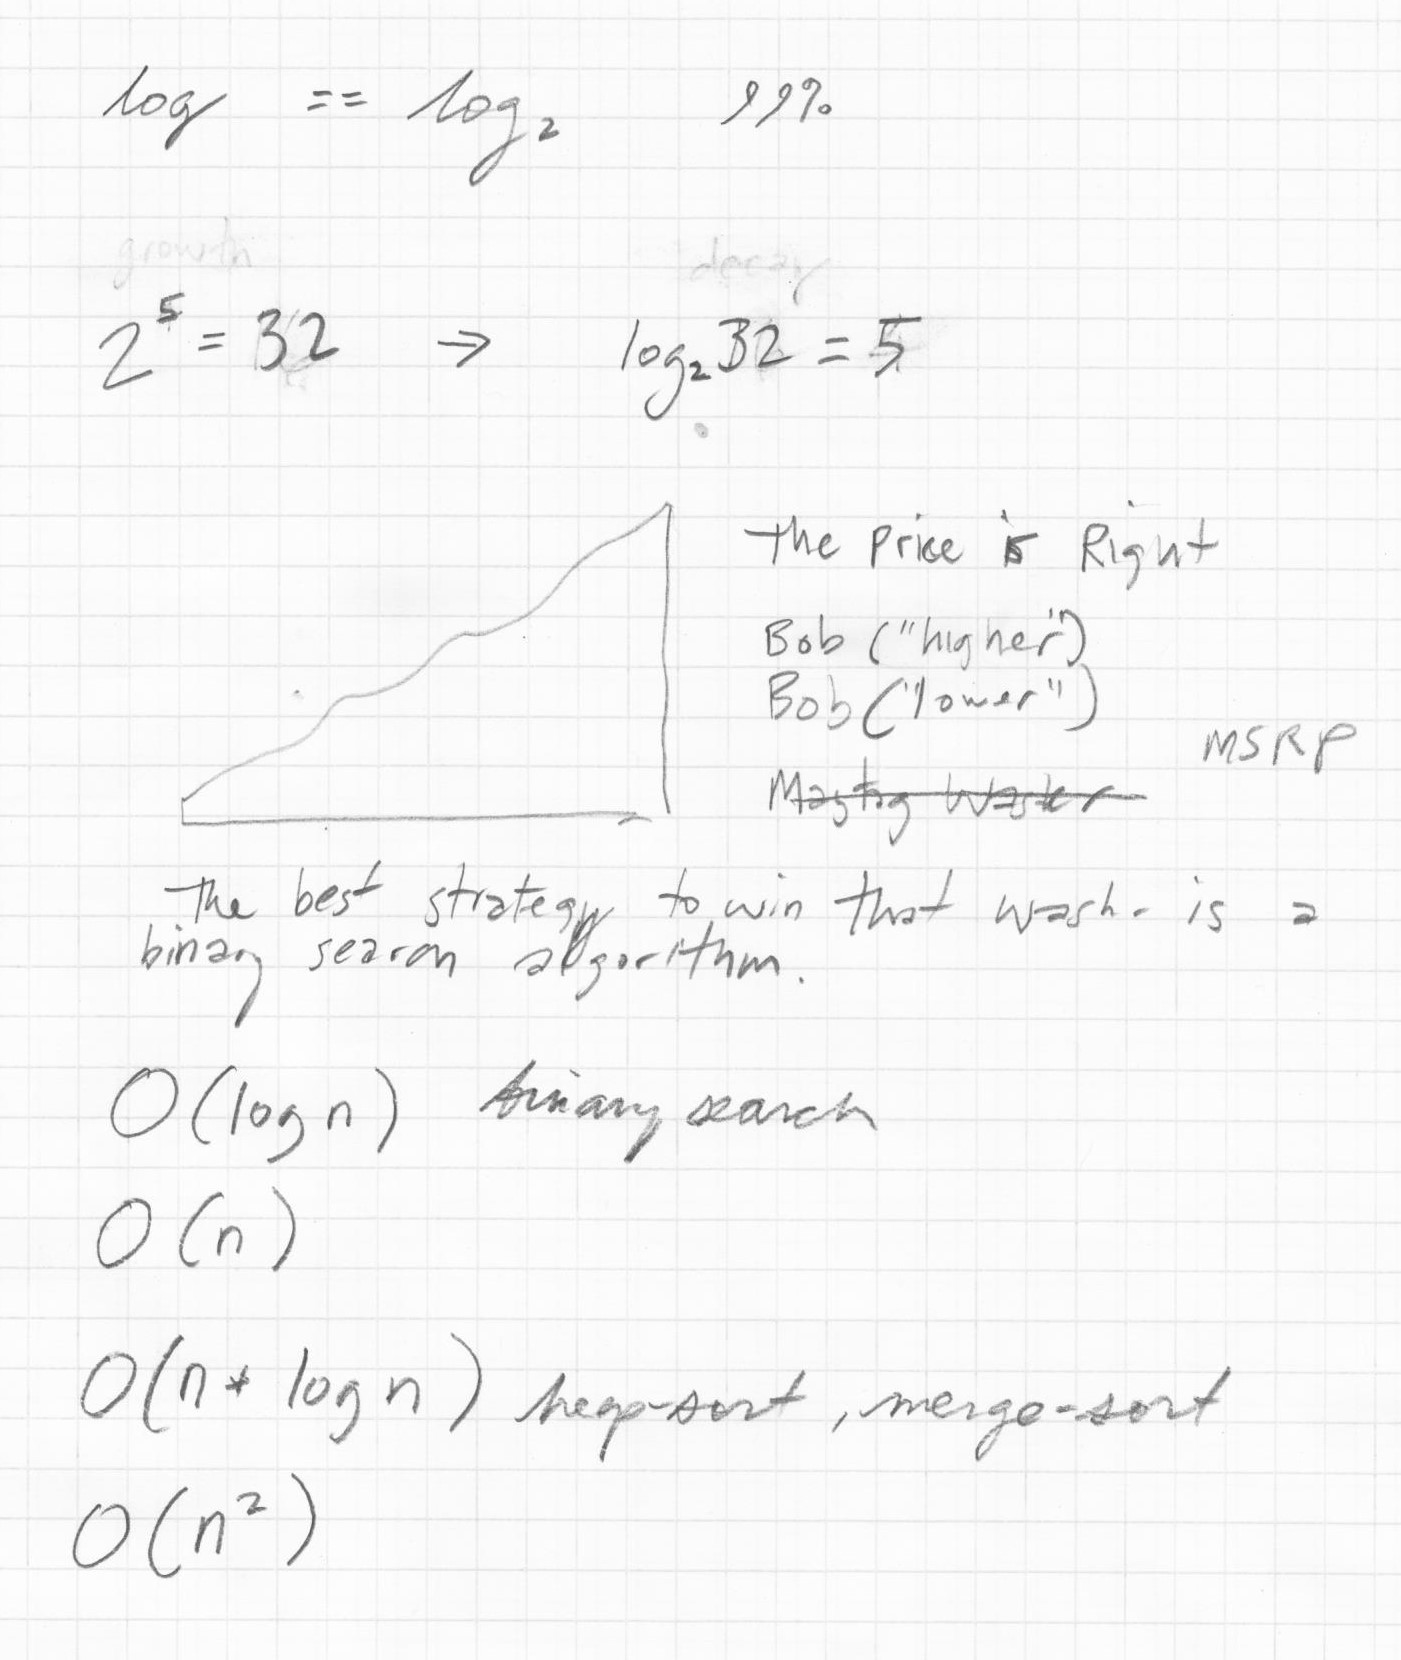 log == log₂ 99%
growth decay
2⁵ = 32 → log₂32 = 5
The Price is Right
Bob ("higher")
Bob ("lower")
MSRP
Maytag Washer
The best strategy to win that wash- is a
binary search algorithm.
O(log n) binary search
O(n)
O(n * log n) heap-sort, merge-sort
O(n²)